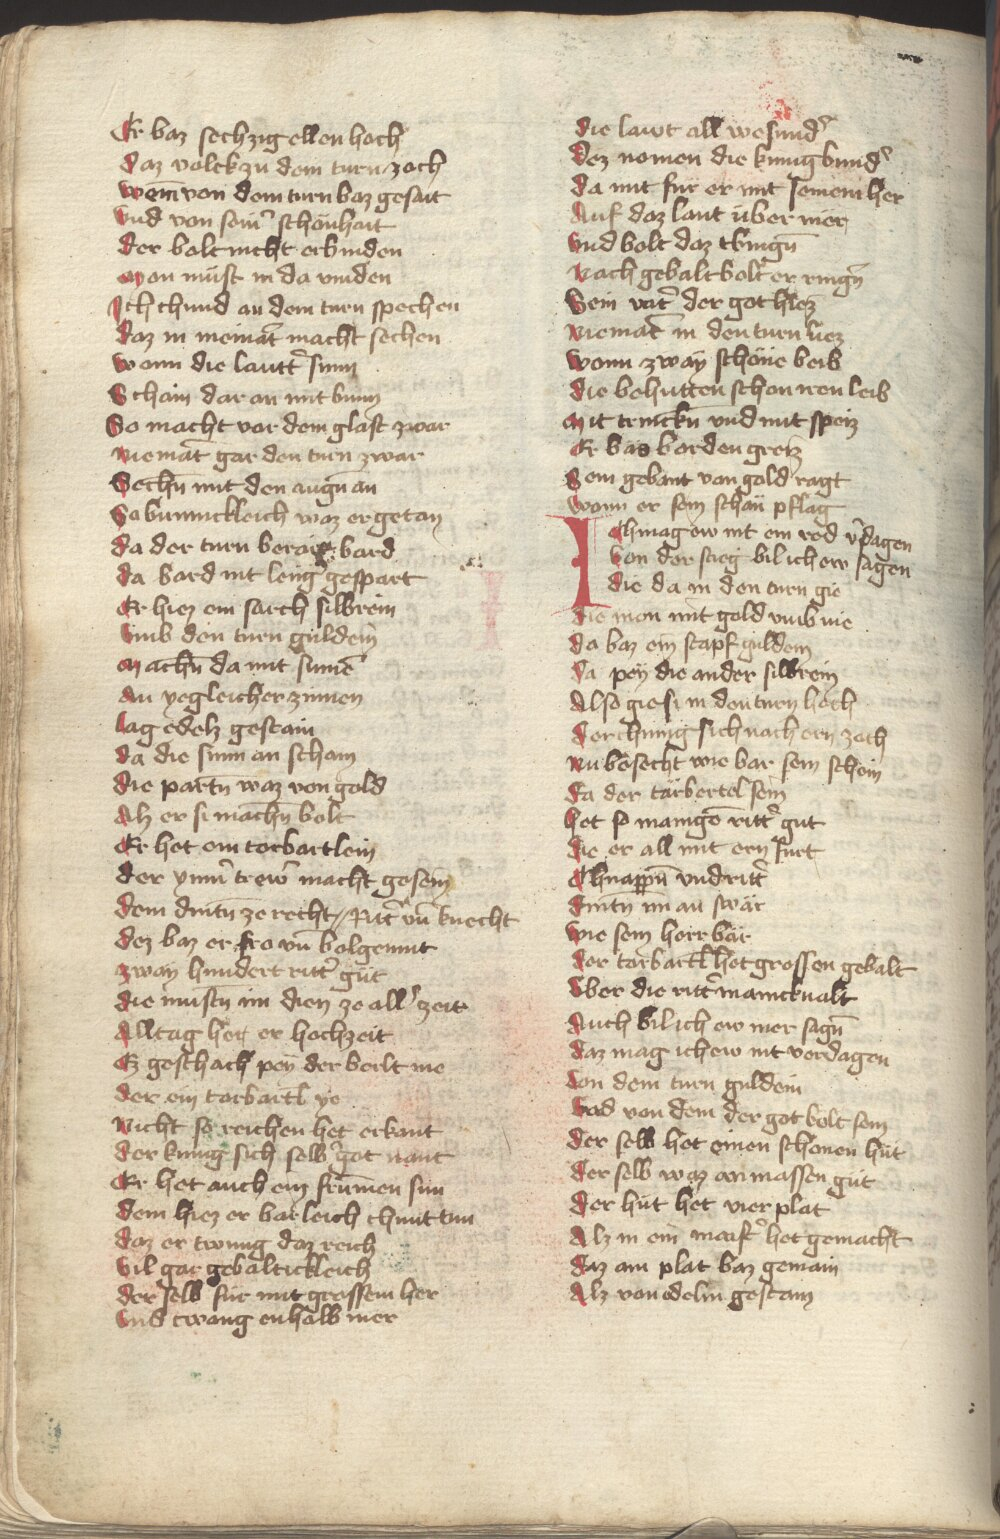 Er baz sechzig ellen hoch
daz volck zu dem turn zoch
wem von dem turn baz gesait
Vnd von seinͬ schönhait
der bolt nicht erbinden
mon müst in da vinden
Ich chund an dem turn spechen
daz in niemāt macht sechen
wann die lauttͬ sunn
Schain dar an mit bunn
So macht vor dem glast zwar
niemāt gar den turn zwar
Sechn̄ mit den augn̄ an
Sa bunnickleich waz er getan
da der turn berait bard
da bard nit lengͬ gespart
Er hiez ein sarch silbrein
Vmb den turn guldein
machn̄ da mit sinnē
an yegleicher zinnen
lag edelz gestain
da die sunn an scham
die partn̄ waz von gold
Alz er si machn̄ bolt
Er het ein torbartlein
der ymmͬ trewͬ macht gesein
dem dintn̄ ze recht / Rittͬ vn̄ knecht
dez baz er fro vn̄ bolgemut
zway hundert rittͬ gut
die mustn̄ im dien ze allͬ zeit
Alltag het er hochzeit
Ez geschach pey der berlt nie
der ein torbartl ye
nicht so reichen het erkant
der kunig sich selbͬ got nant
Er het auch ein frumen sun
dem hiez er barleich chunt tun
daz er twung daz reich
vil gar gebaltickleich
der selb fur mit grossem her
Vnd twang enhalb mer
die lawt all wesundͬ
dez nomen die kunig bundͬ
da mit fur er mit seinem her
Auf daz lant über mer
Vnd bolt daz tbingn̄
Nach gebalt bolt er ringn̄
Sein vatͬ der got hiez
niemāt in den turn liez
wann zway schöne beib
die behutten schon iren leib
mit trinckn̄ vnd mit speiz
Er bas borden greiz
Sein gebant von gold ragt
wann er sein schon pflag
Ich mag ew nit ein red vͬdagen
Von der stieg bil ich ew sagen
die da in den turn gie
die mon mit gold vmb vie
da baz ein stapf guldein
da pey die ander silbrein
Also gie si in den turn hoch
der chunig sich nach ern zoch
nu besecht wie bar sein schein
da der tarbertel sein
het so manigē rittͬ gut
die er all mit ern furt
Chnappn̄ vnd rittͬ
dintn̄ im an swär
wie sein herr bär
der torbartl het grossen gebalt
Vber die rittͬ manickualt
Auch bil ich ew mer sagn̄
daz mag ich ew nit verdagen
von dem turn guldein
Vnd von dem der got bolt sein
der selb het einen schonen hüt
der selb waz an massen güt
der hüt het vier plat
Alz in ein maistͬ het gemacht
daz ain plat baz gemain
Alz von edelm gestain